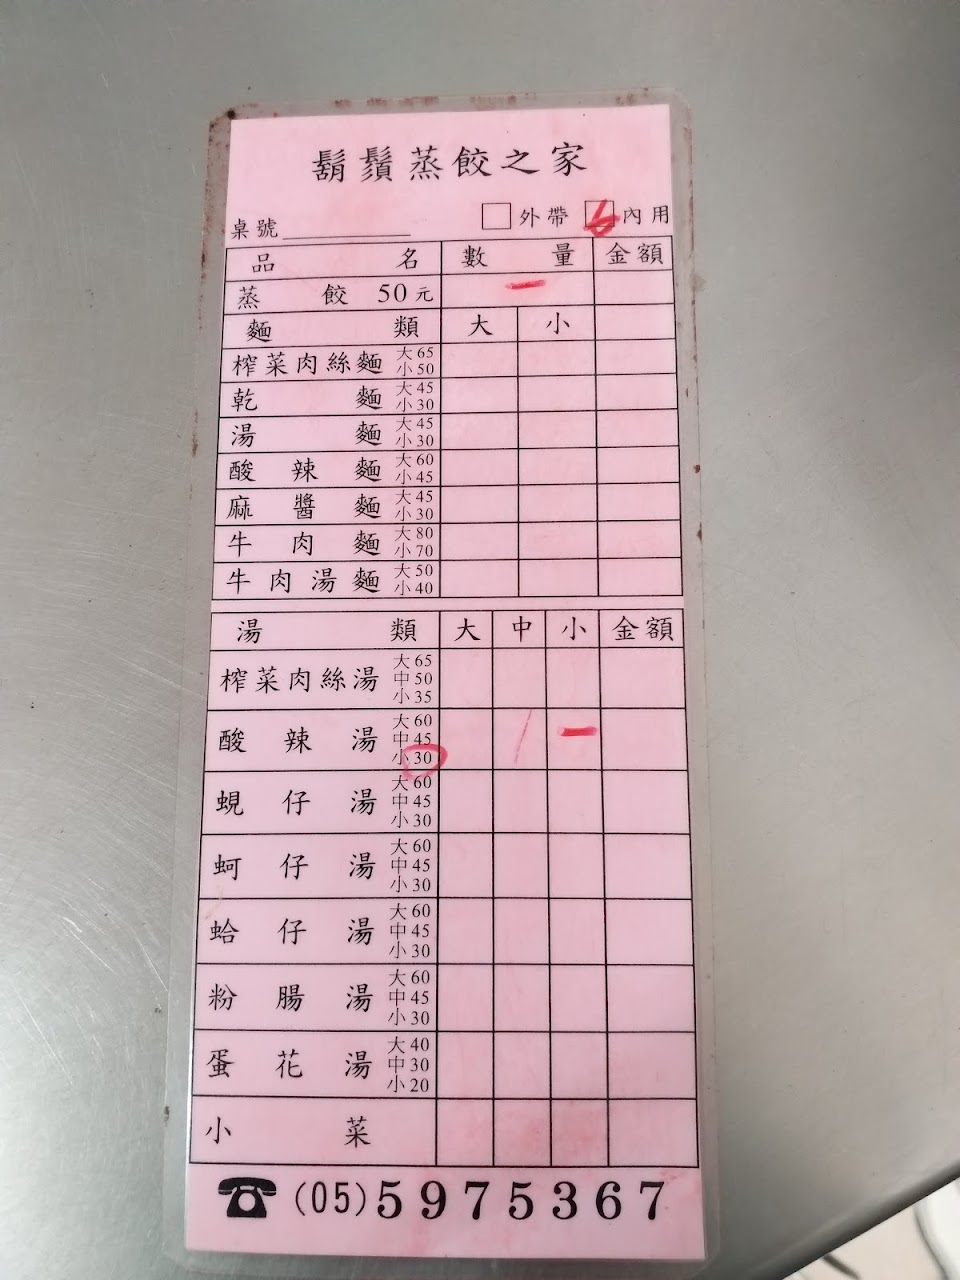 鬍鬚蒸餃之家
桌號 □外帶 □內用
品名 數量 金額
蒸餃 50元 一
麵類 大 小
榨菜肉絲麵 大65 小50
乾麵 大45 小30
湯麵 大45 小30
酸辣麵 大60 小45
麻醬麵 大45 小30
牛肉麵 大80 小70
牛肉湯麵 大50 小40
湯類 大 中 小 金額
榨菜肉絲湯 大65 中50 小35
酸辣湯 大60 中45 小30 一
蜆仔湯 大60 中45 小30
蚵仔湯 大60 中45 小30
蛤仔湯 大60 中45 小30
粉腸湯 大60 中45 小30
蛋花湯 大40 中30 小20
小菜
☎(05)5975367